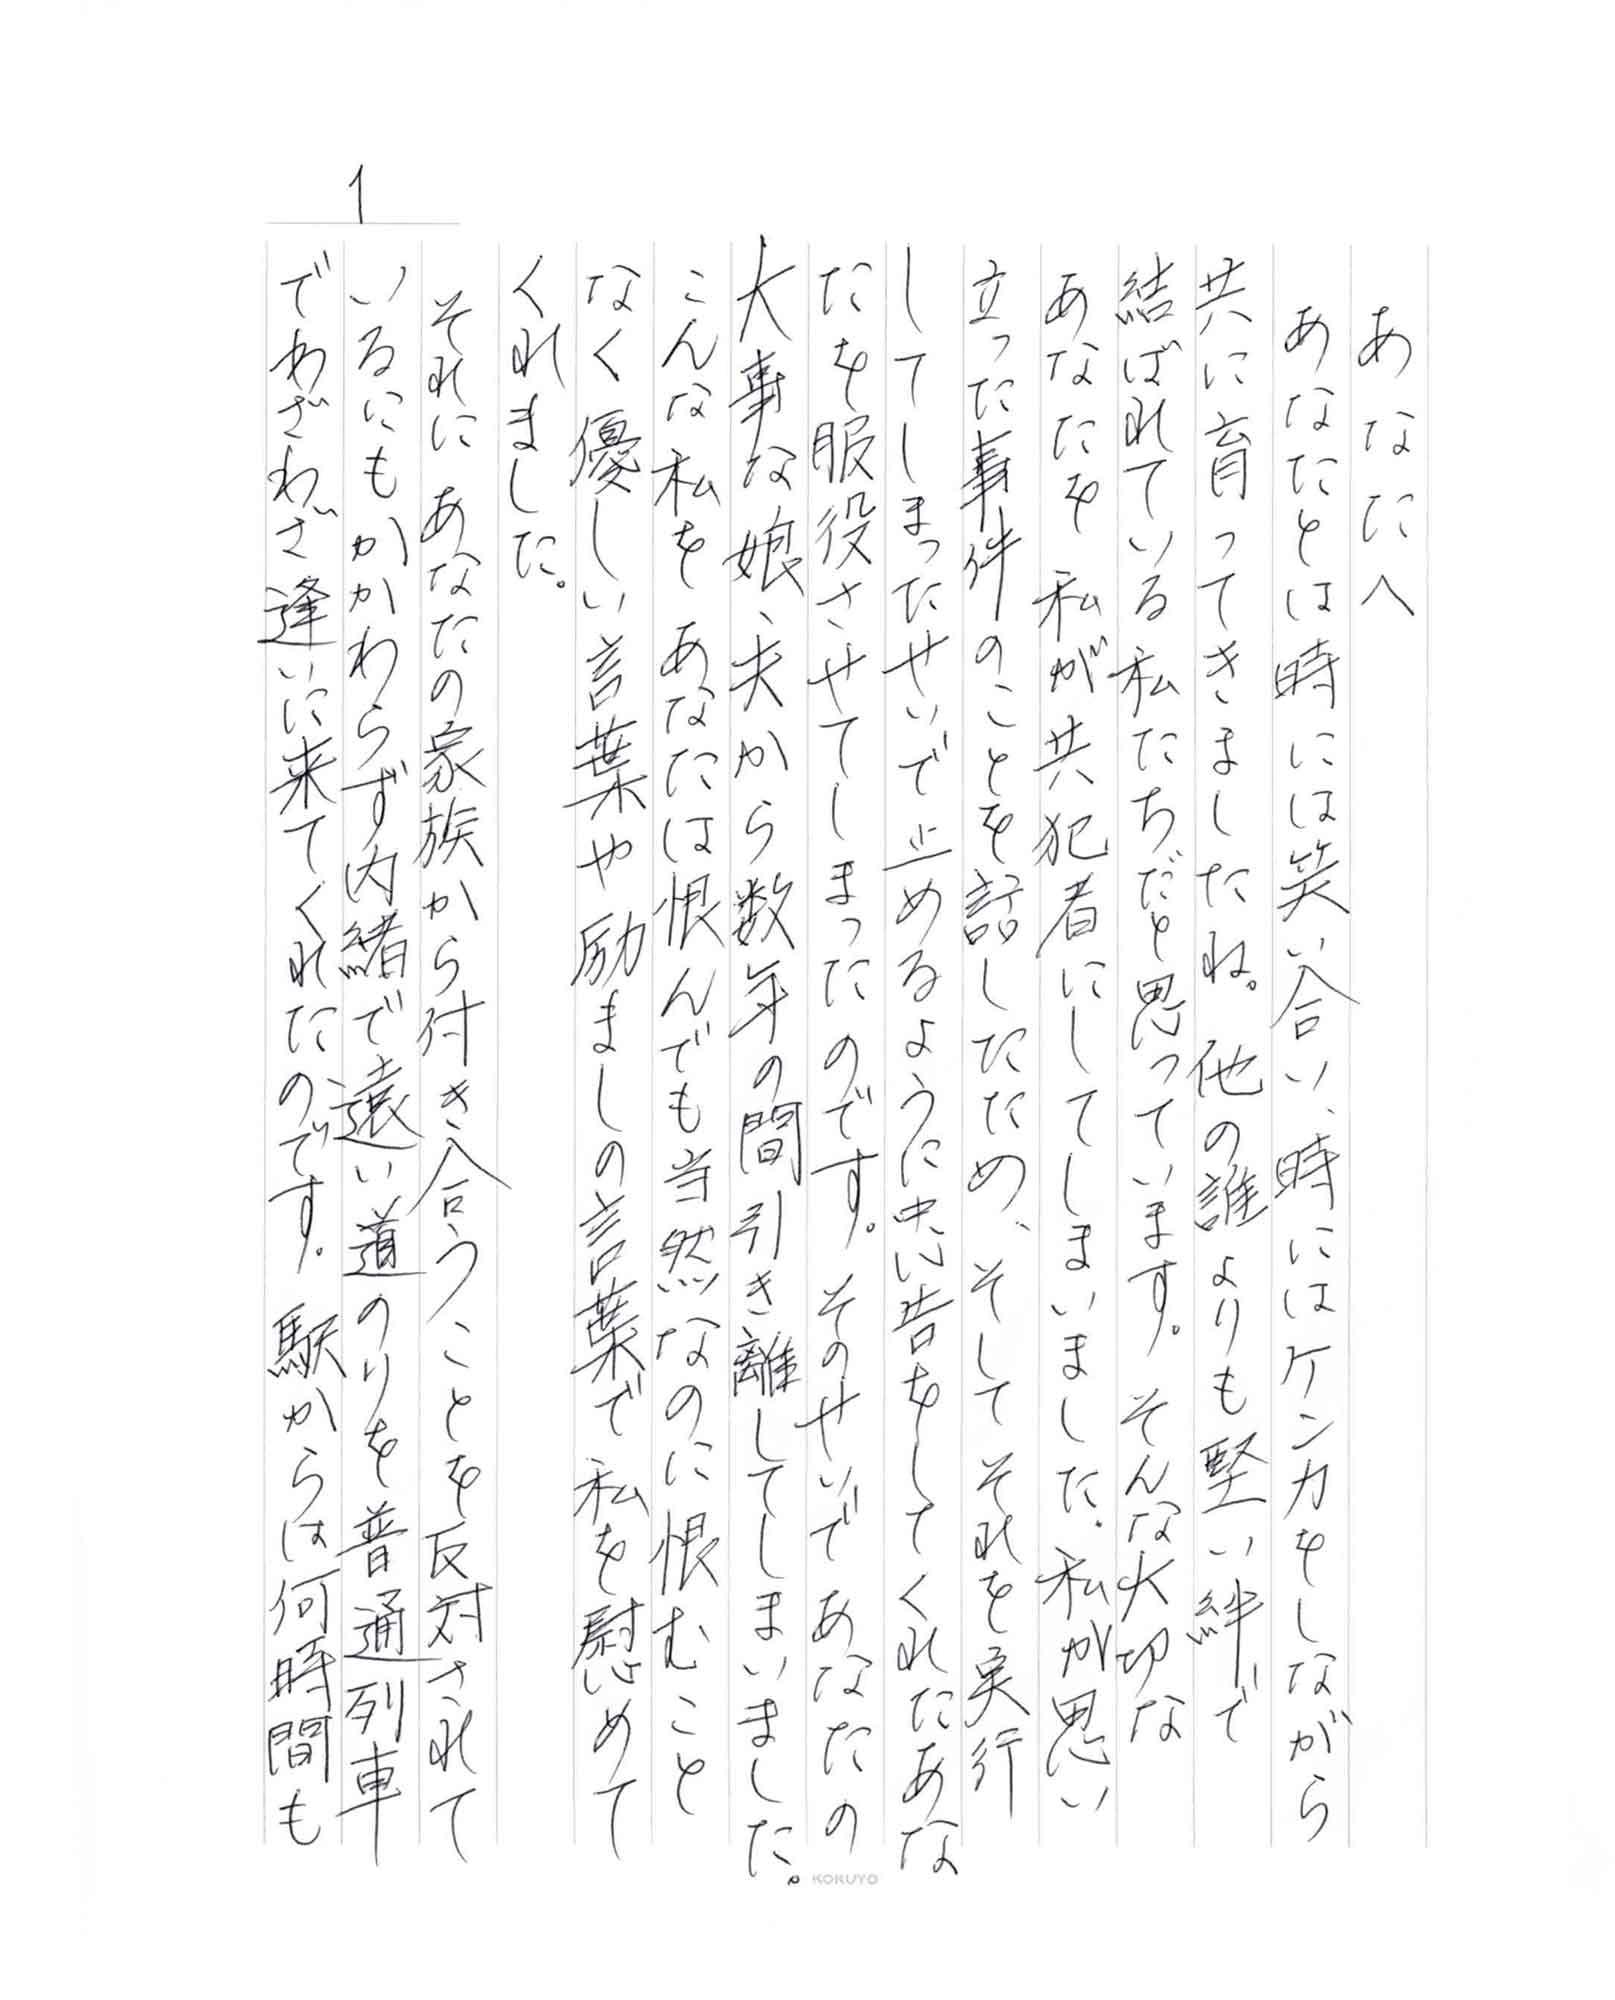 1
あなたへ
あなたとは時には笑い合い、時にはケンカをしながら
共に育ってきましたね。他の誰よりも堅い絆で
結ばれている私たちだと思っています。そんな大切な
あなたを私が共犯者にしてしまいました。私が思い
立った事件のことを話したため、そしてそれを実行
してしまったせいで止めるように忠告をしてくれたあな
たを服役させてしまったのです。そのせいであなたの
大事な娘、夫から数年の間引き離してしまいました。
こんな私をあなたは恨んでも当然なのに恨むこと
なく優しい言葉や励ましの言葉で私を慰めて
くれました。
それにあなたの家族から付き合うことを反対されて
いるにもかかわらず内緒で遠い道のりを普通列車
でわざわざ逢いに来てくれたのです。駅からは何時間も
KOKUYO